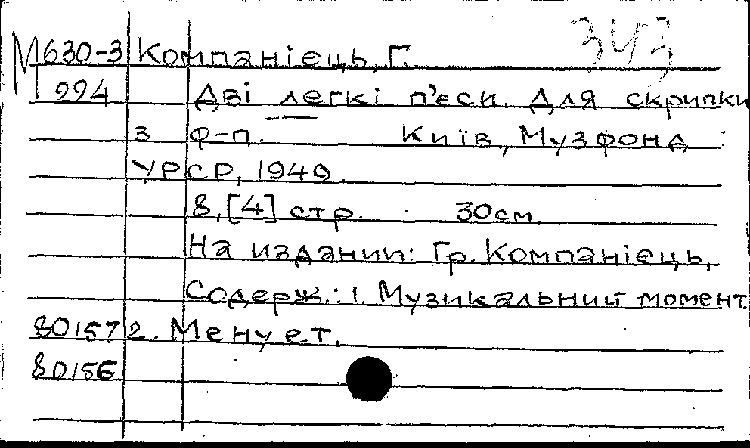 343
М630-3 Компанієць, Г.
994 Дві легкі п'єси. Для скрипки
з ф-п. Київ, Музфонд
УРСР, 1949.
8, [4] стр. 30см.
На издании: Гр. Компанієць,
Содерж.: 1. Музикальний момент.
80157 2. Менует.
80156